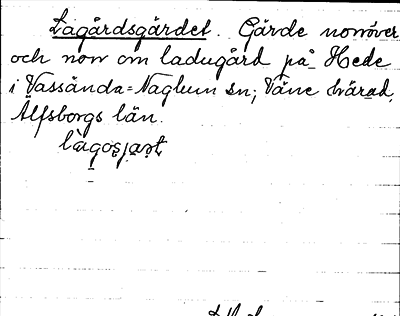 Lagårdsgärdet. Gärde norröver
och norr om ladugård på Hede
i Vassända-Naglum sn; Väne härad,
Älfsborgs län.